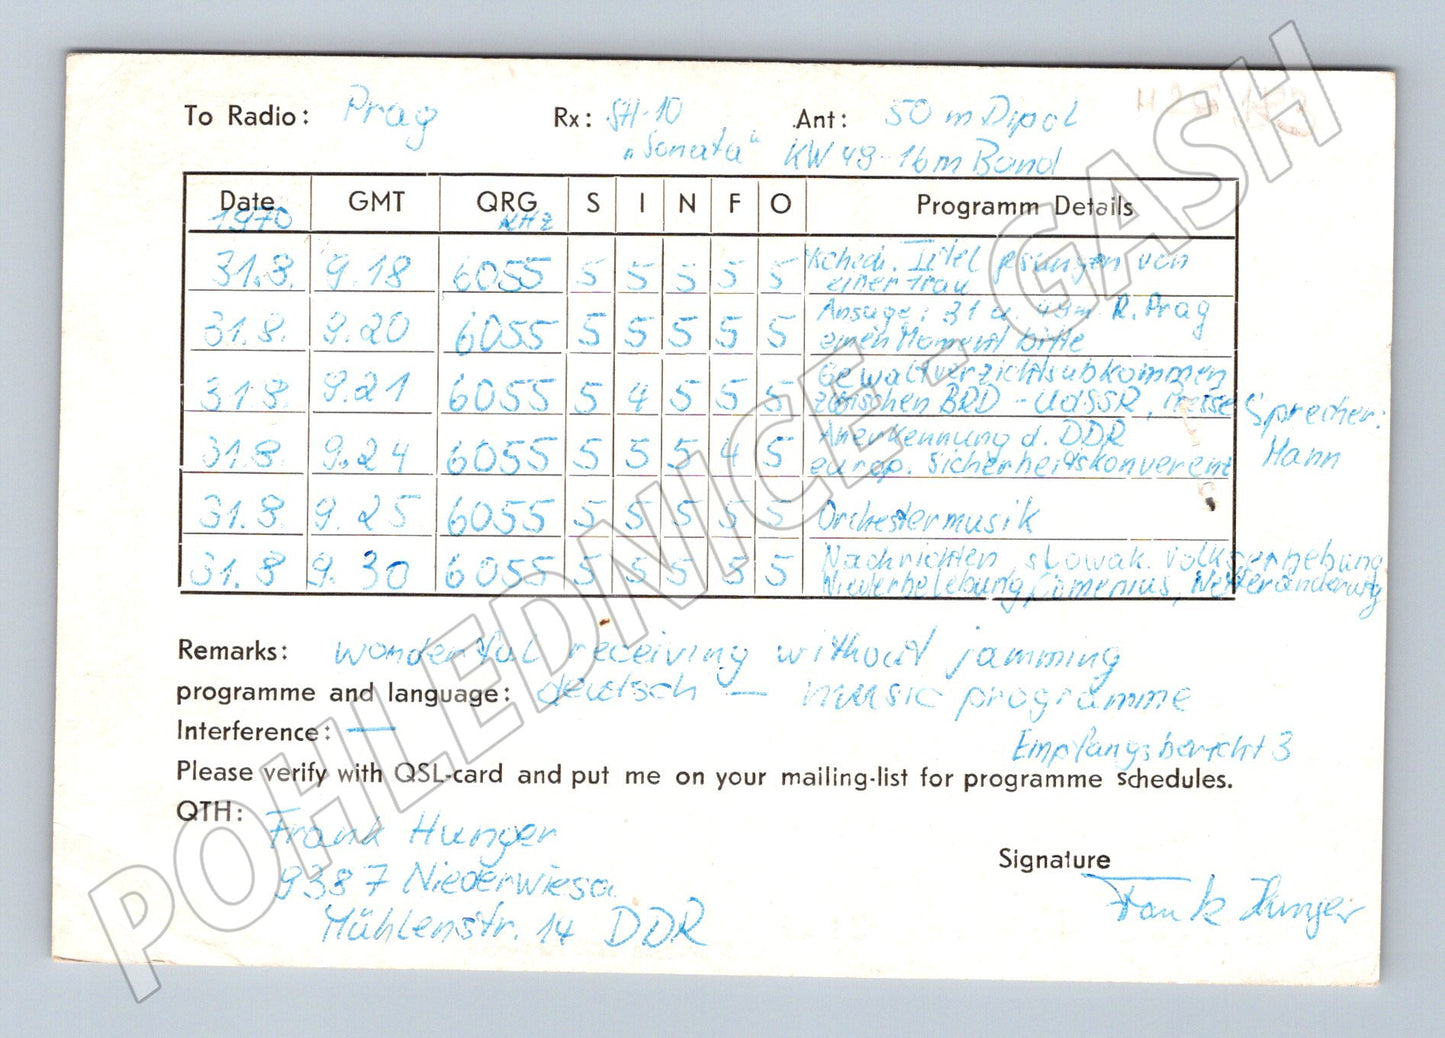 To Radio: Prag Rx: SH-10 Ant: 50 m Dipol
"Sonata" KW 49-16m Band
Date GMT QRG S I N F O Programm Details
1970 KHz
31.8. 9.18 6055 5 5 5 5 5 tschech. Titel gesungen von
einer Frau
31.8. 9.20 6055 5 5 5 5 5 Ansage: 31 u. 49m R. Prag
einen Moment bitte
31.8. 9.21 6055 5 4 5 5 5 Gewaltverzichtsabkommen
zwischen BRD - UdSSR, Presse Sprecher:
31.8. 9.24 6055 5 5 5 4 5 Anerkennung d. DDR
europ. Sicherheitskonverenz Mann
31.8. 9.25 6055 5 5 5 5 5 Orchestermusik
31.8 9.30 6055 5 5 5 5 5 Nachrichten, slowak. Volkserhebung
Wiederbelebung, Comenius,
Remarks: wonderful receiving without jamming
programme and language: deutsch — music programme
Interference: —
Empfangsbericht 3
Please verify with QSL-card and put me on your mailing-list for programme schedules.
QTH: Frank Hunger
9387 Niederwiesa
Mühlenstr. 14 DDR
Signature
Frank Hunger
POHLEDNICE - GASH